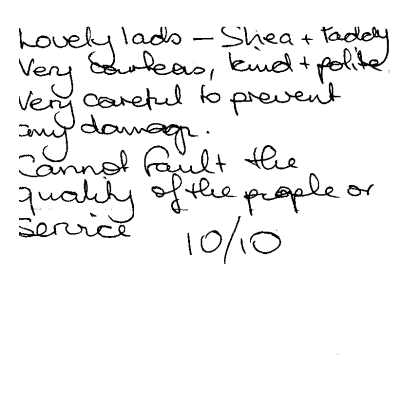 Lovely lads – Shea + Paddy
Very courteous, kind + polite
Very careful to prevent
any damage.
Cannot fault the
quality of the people or
Service 10/10